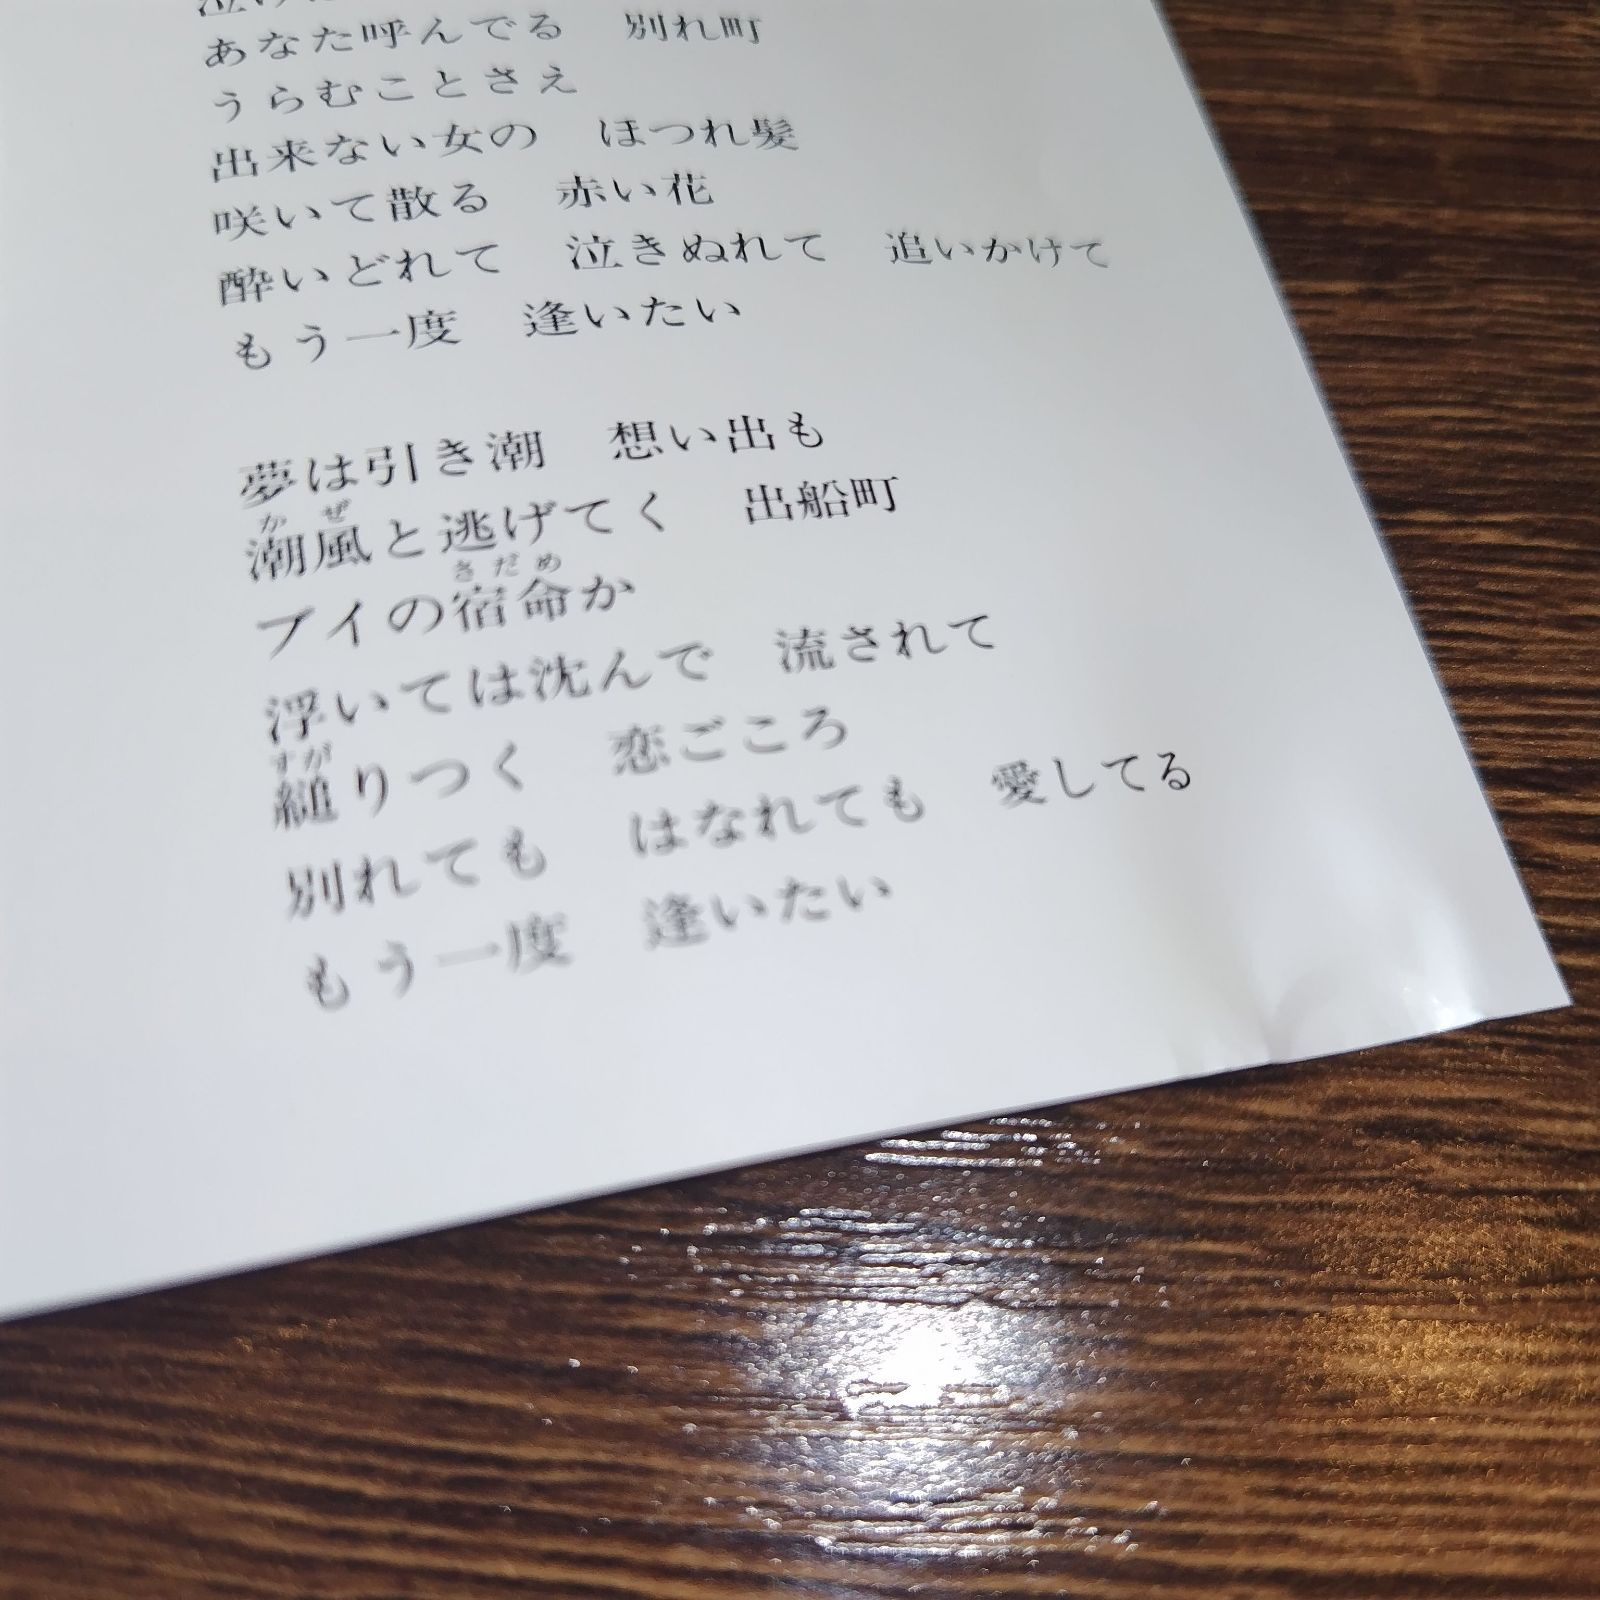 あなた呼んでる　別れ町
うらむことさえ
出来ない女の　ほつれ髪
咲いて散る　赤い花
酔いどれて　泣きぬれて　追いかけて
もう一度　逢いたい
夢は引き潮　想い出も
かぜ
潮風と逃げてく　出船町
さだめ
ブイの宿命か
浮いては沈んで　流されて
すが
縋りつく　恋ごころ
別れても　はなれても　愛してる
もう一度　逢いたい